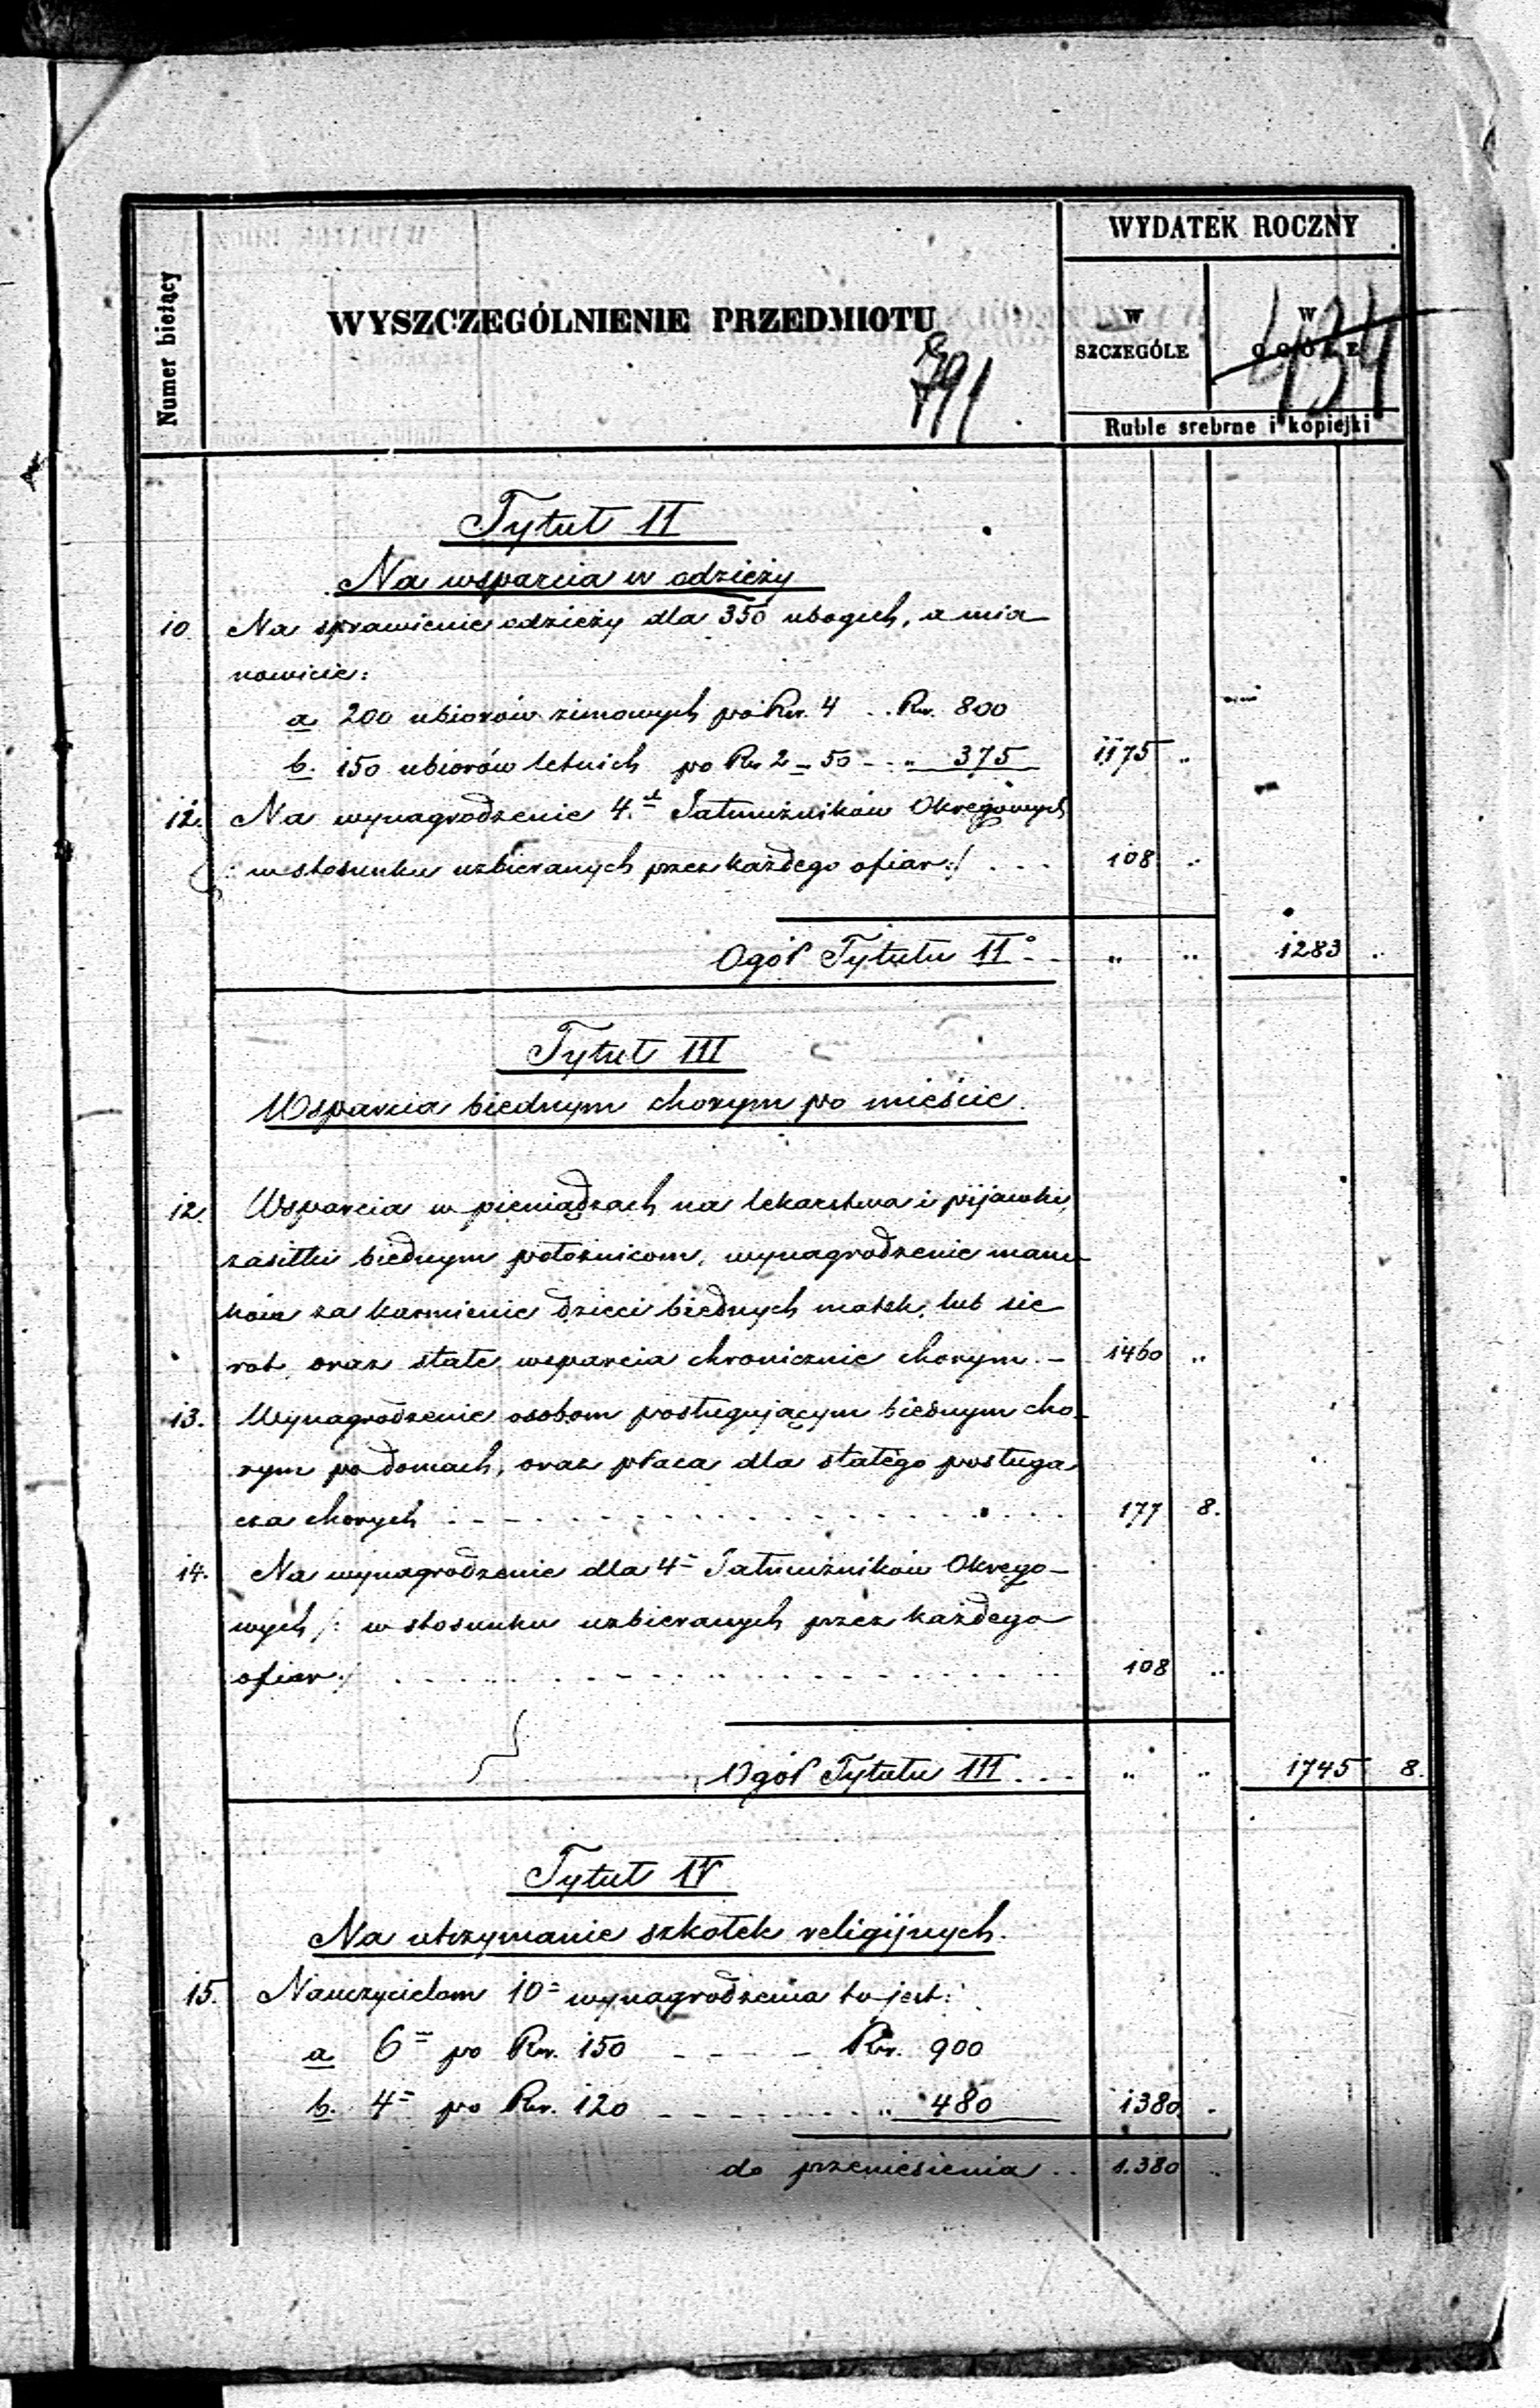 WYDATEK ROCZNY
Numer bieżący
WYSZCZEGÓLNIENIE PRZEDMIOTU
W SZCZEGÓLE
W OGÓLE
434
791
Ruble srebrne i kopiejki
Tytuł II
Na wsparcia w odzieży
10 Na sprawienie odzieży dla 350 ubogich, a mia
nowicie:
a 200 ubiorów zimowych po Rsr. 4 . . Rsr. 800
b. 150 ubiorów letnich po Rsr 2 – 50 – . „ 375 1175 „
12. Na wynagrodzenie 4.ch Jałmużników Okręgowych
/: w stosunku uzbieranych przez każdego ofiar :/ . . . 108 „
Ogół Tytułu II° - - „ „ 1283 „
Tytuł III
Wsparcia biednym chorym po mieście.
12. Wsparcia w pieniądzach na lekarstwa i pijawki,
zasiłki biednym położnicom, wynagrodzenie mam-
kom za karmienie dzieci biednych matek, lub sie
rot, oraz stałe wsparcia chronicznie chorym. – 1460 „
13. Wynagrodzenie osobom posługującym biednym cho-
rym po domach, oraz płaca dla stałego posługa
cza chorych . . . . . . 177 8.
14. Na wynagrodzenie dla 4= Jałmużników Okręgo-
wych /: w stosunku uzbieranych przez każdego
ofiar :/ . . . . . . 108 „
Ogół Tytułu III . . . „ „ 1745 8.
Tytuł IV
Na utrzymanie szkółek religijnych.
15. Nauczycielom 10= wynagrodzenia to jest:
a 6= po Rsr. 150 - - - - Rsr. 900
b. 4= po Rsr. 120 - - - - - - „ 480 1380 .
do przeniesienia . . 1.380 „